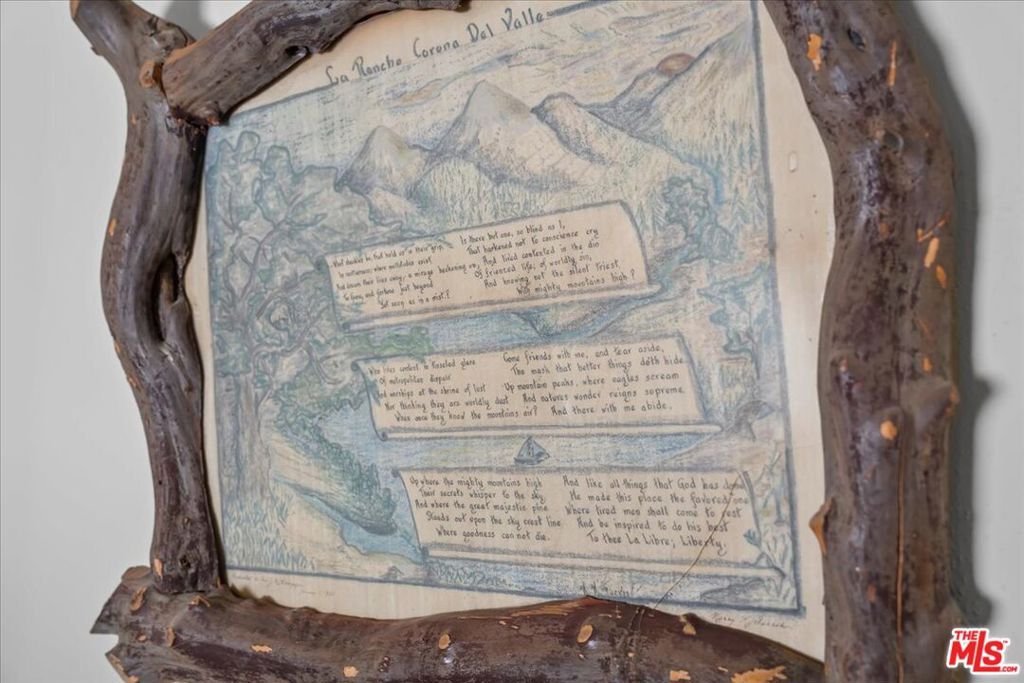 La Rancho Corona Del Valle
What shackles be, that hold us in their grip
In nothingness; where multitudes exist
And dream their lives away; a mirage beckoning on,
To fame, and fortune just beyond
Yet seen as in a mist?
Is there but one, so blind as I,
That harkened not to conscience cry
And lived contented in the din
Of frienzed life; of worldly sin,
And knowing not the silent
Why mighty mountains high?
Who lives content to tinseled glare
Of metropolitan dispair
And worships at the shrine of lust
Nor thinking they are worldly dust
When once they know the mountains air?
Come friends with me, and tear aside,
The mask that better things doth hide
Up mountain peaks, where eagles scream
And natures wonder reigns supreme.
And there with me abide.
Up where the mighty mountains high
Their secrets whisper to the sky
And where the great majestic pine
Stands out upon the sky crest line
Where goodness can not die.
And like all things that God has done
He made this place the favored one
Where tired men shall come to rest
And be inspired to do his best
To thee La Libre; Liberty.
THE
MLS™
.COM